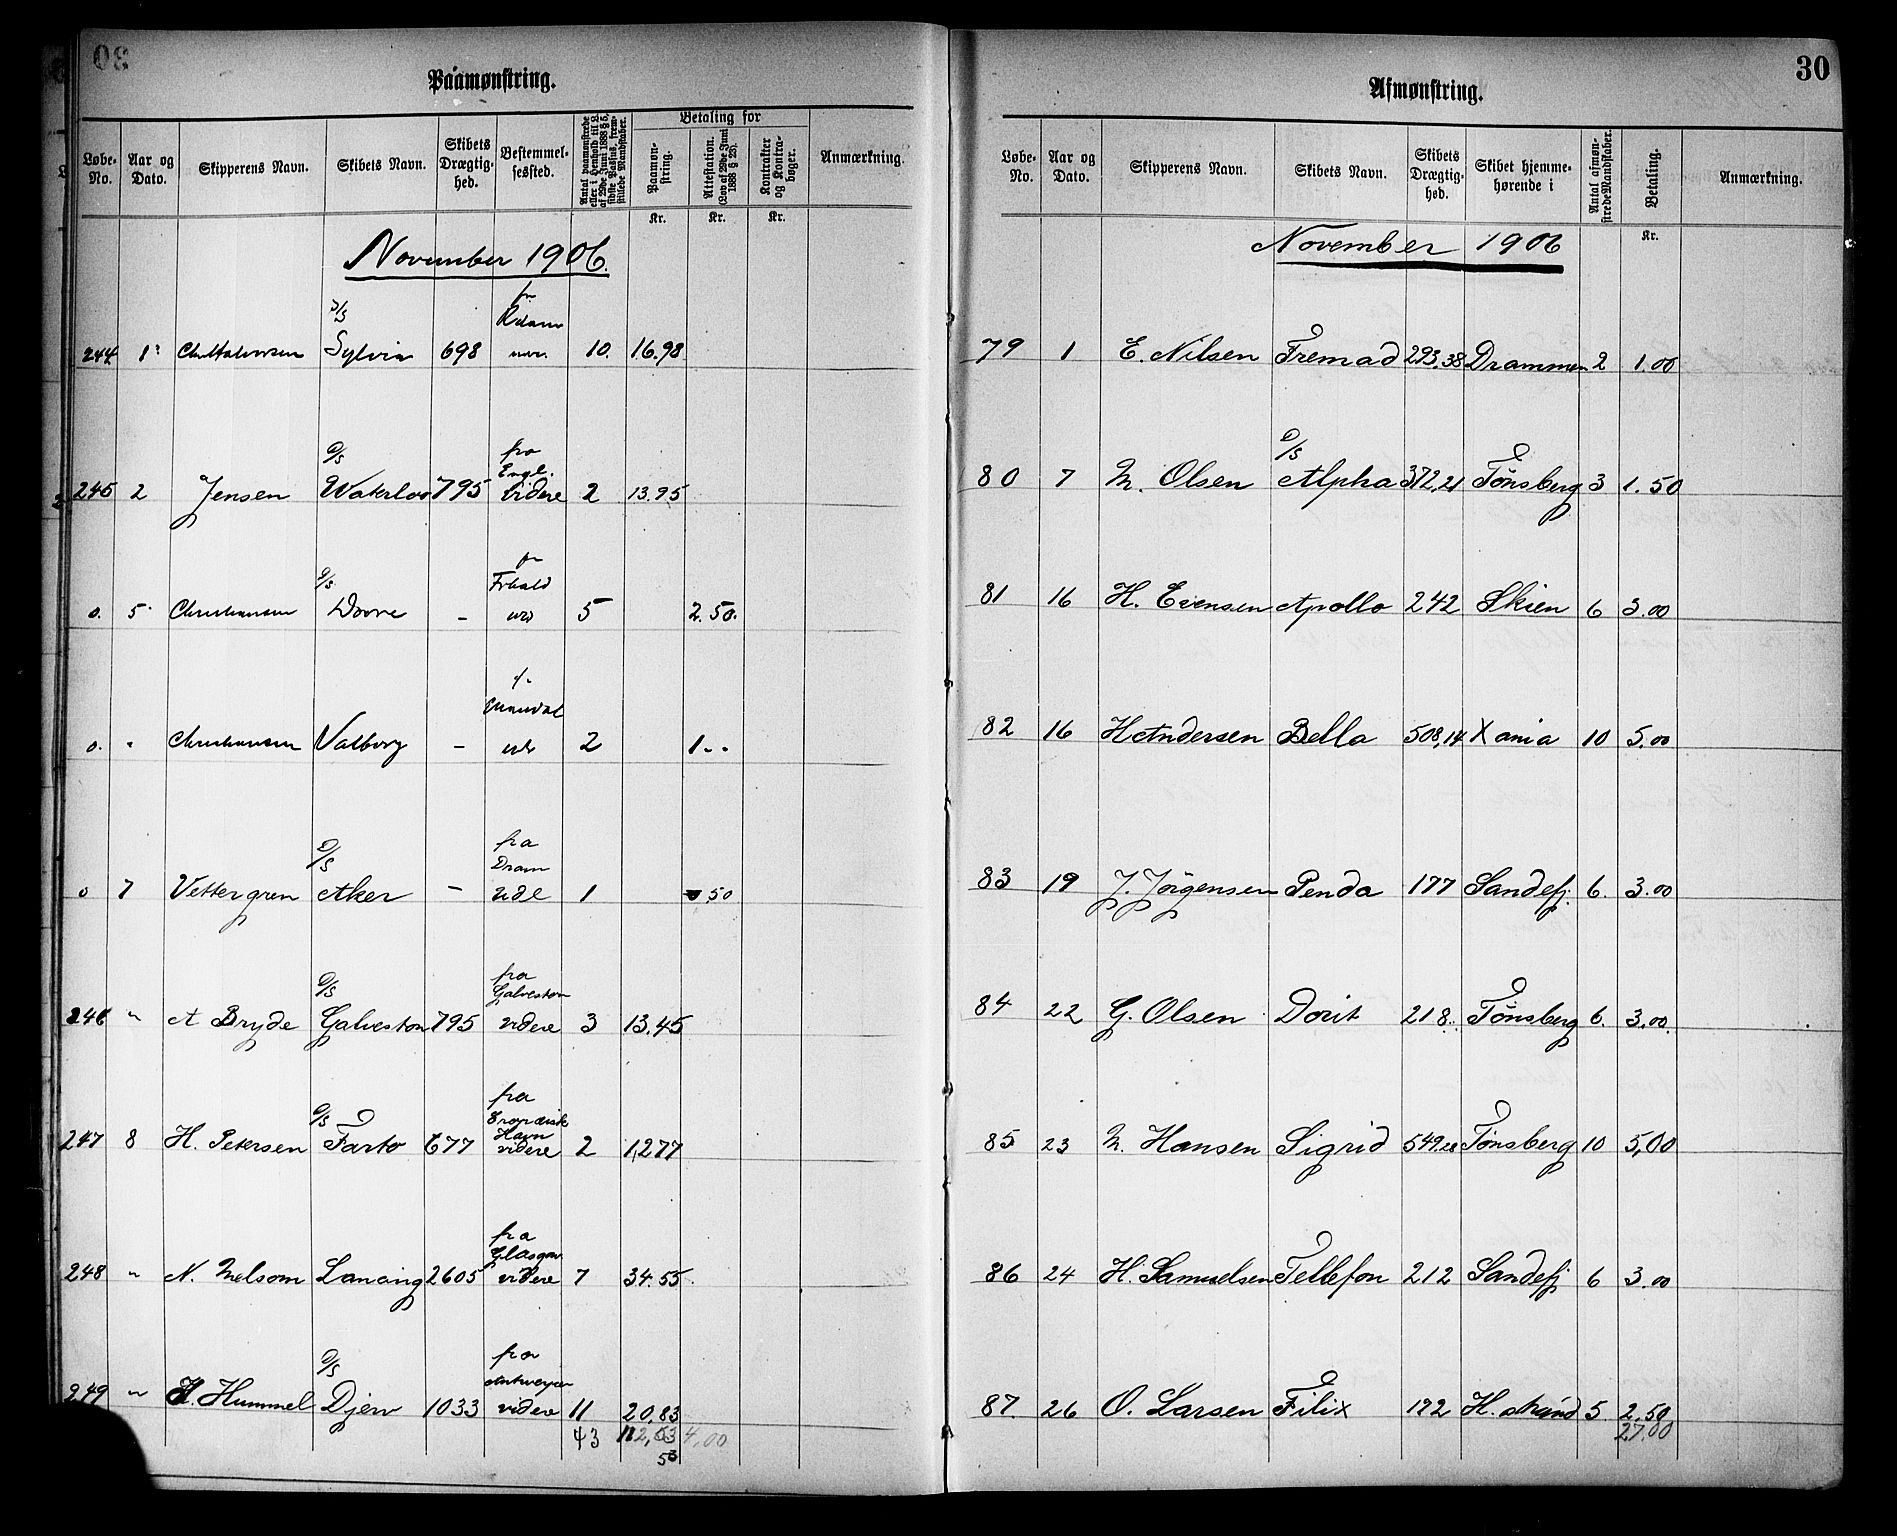 30
Paamønstring.
Løbe-No. Aar og Dato. Skipperens Navn. Skibets Navn. Skibets Drægtig-hed. Bestemmel-sessted. Antal paamønstrede eller i Henhold til L. af 29de Juni 1888 § 5, sidste Passus, frem-stillede Mandskaber. Betaling for Paamøn-string. Attestation. (Lov af 29de Juni 1888 § 23). Kontrakter og Kontra-bøger. Anmærkning.
Kr. Kr. Kr.
November 1906.
244 1 Chr Halvorsen D/S Sylvia 698 fr 10. 16.98
245 2 Jensen D/S Waterloo 795 fra Engl. videre 2 13.95
0. 5 Christiansen D/S Dovre - fr Frhald 5 2.50.
0. " Christiansen Valborg - 2 1 - -
0 7 Vettergren D/S Aker - fra Dram udl 1 0,50
246 " A Bryde D/S Galveston 795 fra Galveston videre 3 13.45
247 8 H. Petersen D/S Farto 677 fra Eropæisk Havn videre 2 12,77
248 " N. Melsom Lancing 2605 fra Glasgow videre 7 34.55
249 " H. Hummel D/S Djerv 1033 fra Antwerpen videre 11 20,83
43 112,53 4,00
53
30
Afmønstring.
Løbe-No. Aar og Dato. Skipperens Navn. Skibets Navn. Skibets Drægtig-hed. Skibet hjemme-hørende i Antal afmøn-strede Mandskaber. Betaling. Anmærkning.
Kr.
November 1906
79 1 E. Nilsen Fremad 293,38 Drammen 2 1.00
80 7 M. Olsen D/S Alpha 372,21 Tønsberg 3 1.50
81 16 H. Evensen Apollo 242 Skien 6 3.00
82 16 H Andersen Bella 508,14 Xania 10 5.00
83 19 J. Jörgensen Penda 177 Sandefj. 6. 3.00
84 22 G. Olsen Dorit 218. Tønsberg 6. 3.00.
85 23 M. Hansen Sigrid 549,28 Tønsberg 10 5,00
86 24 H. Samuelsen Tellefon 212 Sandefj 6 3.00
87. 26 O. Larsen Filix 192 H. strand 5 2,50
27.00